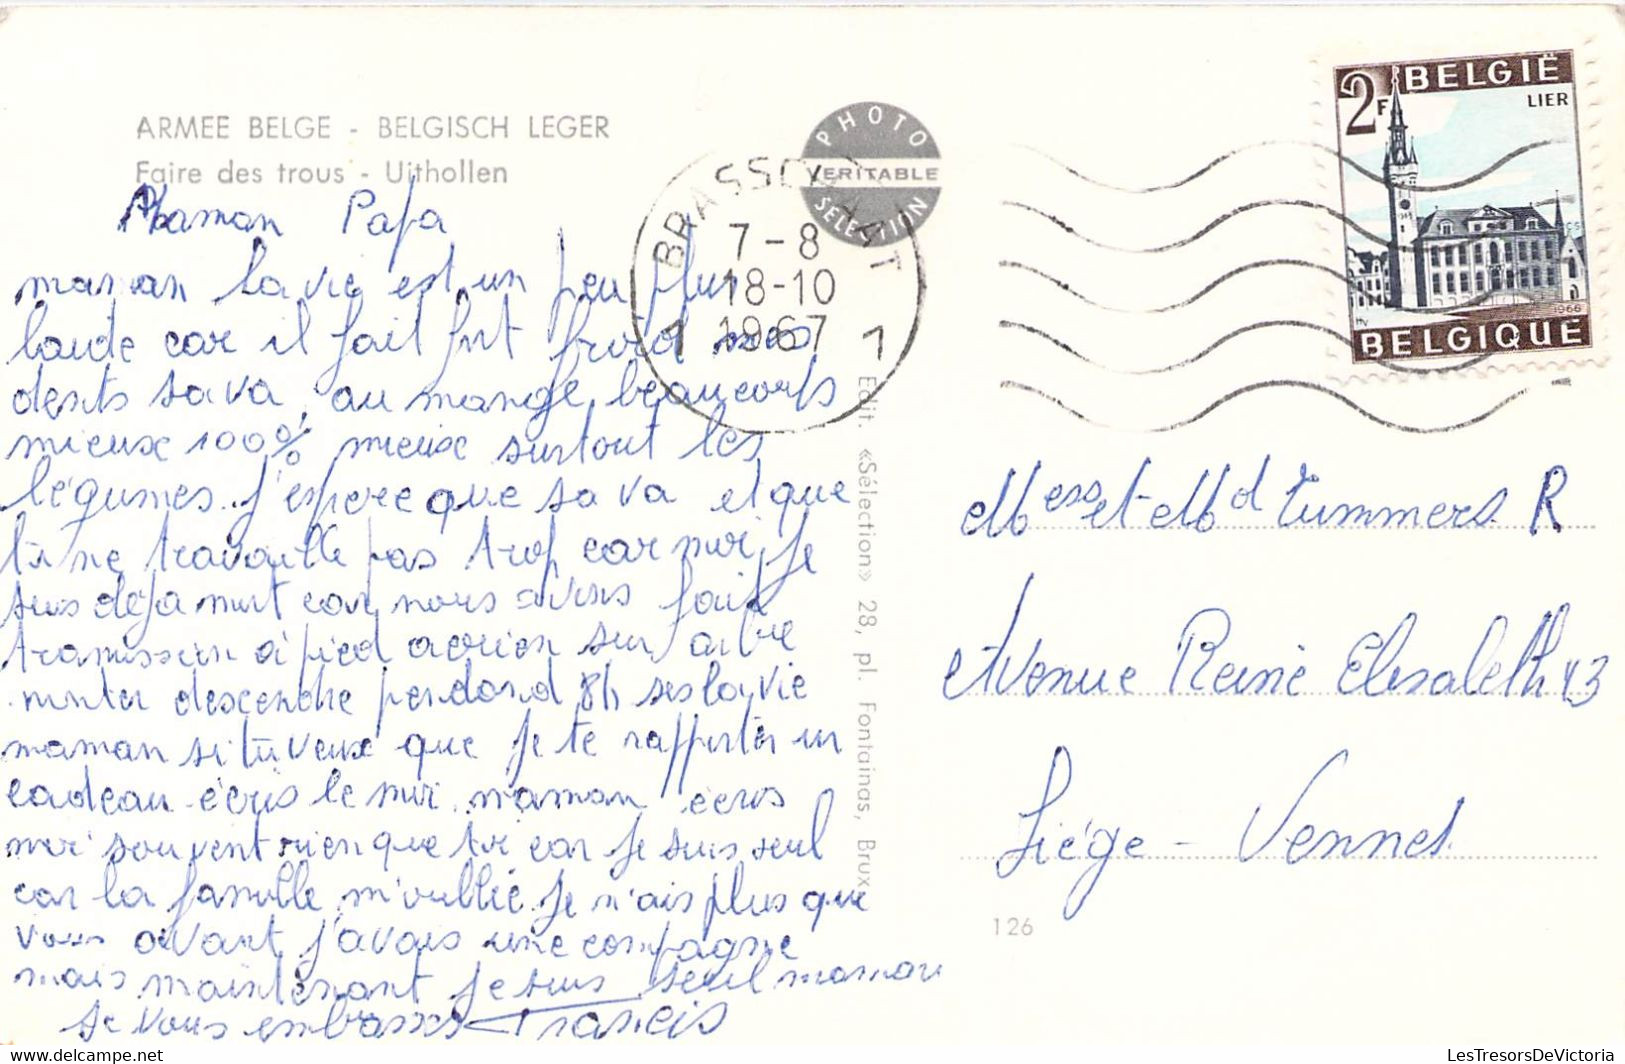 ARMEE BELGE - BELGISCH LEGER
Faire des trous - Uithollen
Maman Papa
maman la vie est un peu plus
laide car il fait fort froid mes
dents sa va, on mange beaucoups
mieux 100% mieux surtout les
légumes. J'espere que sa va et que
tu ne travaille pas trop car moi, je
suis déja mort car nous avons fait
à pied sur arbre
monter descendre pendand 8h ses la vie
maman si tu veux que je te rapporter un
cadeau écris le moi. maman écris
moi souvent rien que toi car je suis seul
car la famille m'oublie je n'ais plus que
vous avant j'avais une compagne
mais maintenant je suis seul maman
Je vous embrasses Francis
PHOTO
VERITABLE
SELECTION
BRASSCHAAT
7-8
18-10
1967
1 1
Edit. «Sélection» 28, pl. Fontainas, Brux.
2F BELGIË
LIER
1966
BELGIQUE
Mess et Md Tummers R
Avenue Reine Elisabeth 43
Liége - Vennes
126
LesTresorsDeVictoria
https://www.delcampe.net